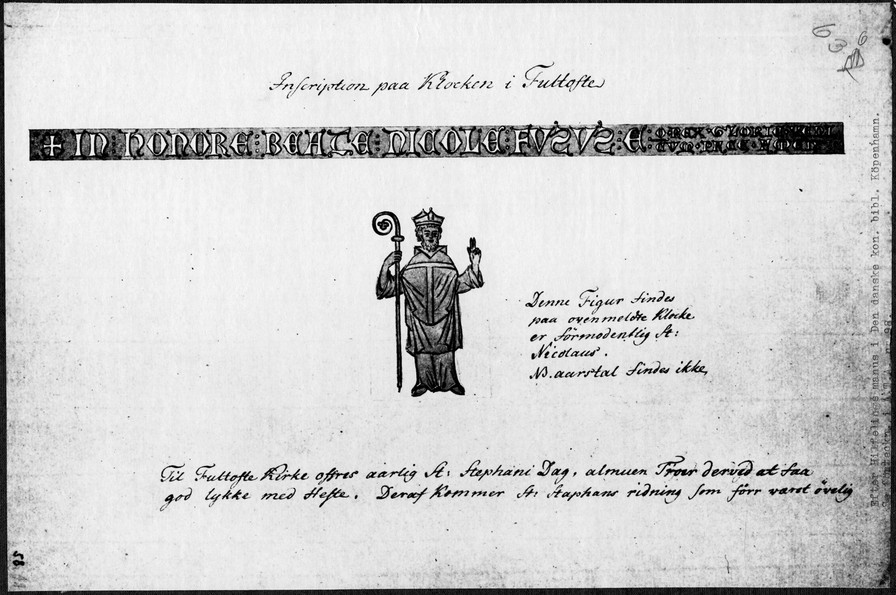 Inscription paa Klocken i Fultofte
+ IN HONORE : BEATE : NICOLE FVSVS : E : O REX GLORIE
Denne Figur findes
paa ovenmeldte Klocke
er förmodentlig St:
Nicolaus.
NB. aarstal findes ikke,
Til Fultofte Kirke offres aarlig St: Stephani Dag, almuen Troer derved at faa
god lykke med Hefte. Deraf Kommer St: Staphans ridning som förr været övelig
Efter Hilfeling manus i Den danske kon. bibl. Köpenhamn.
636
85